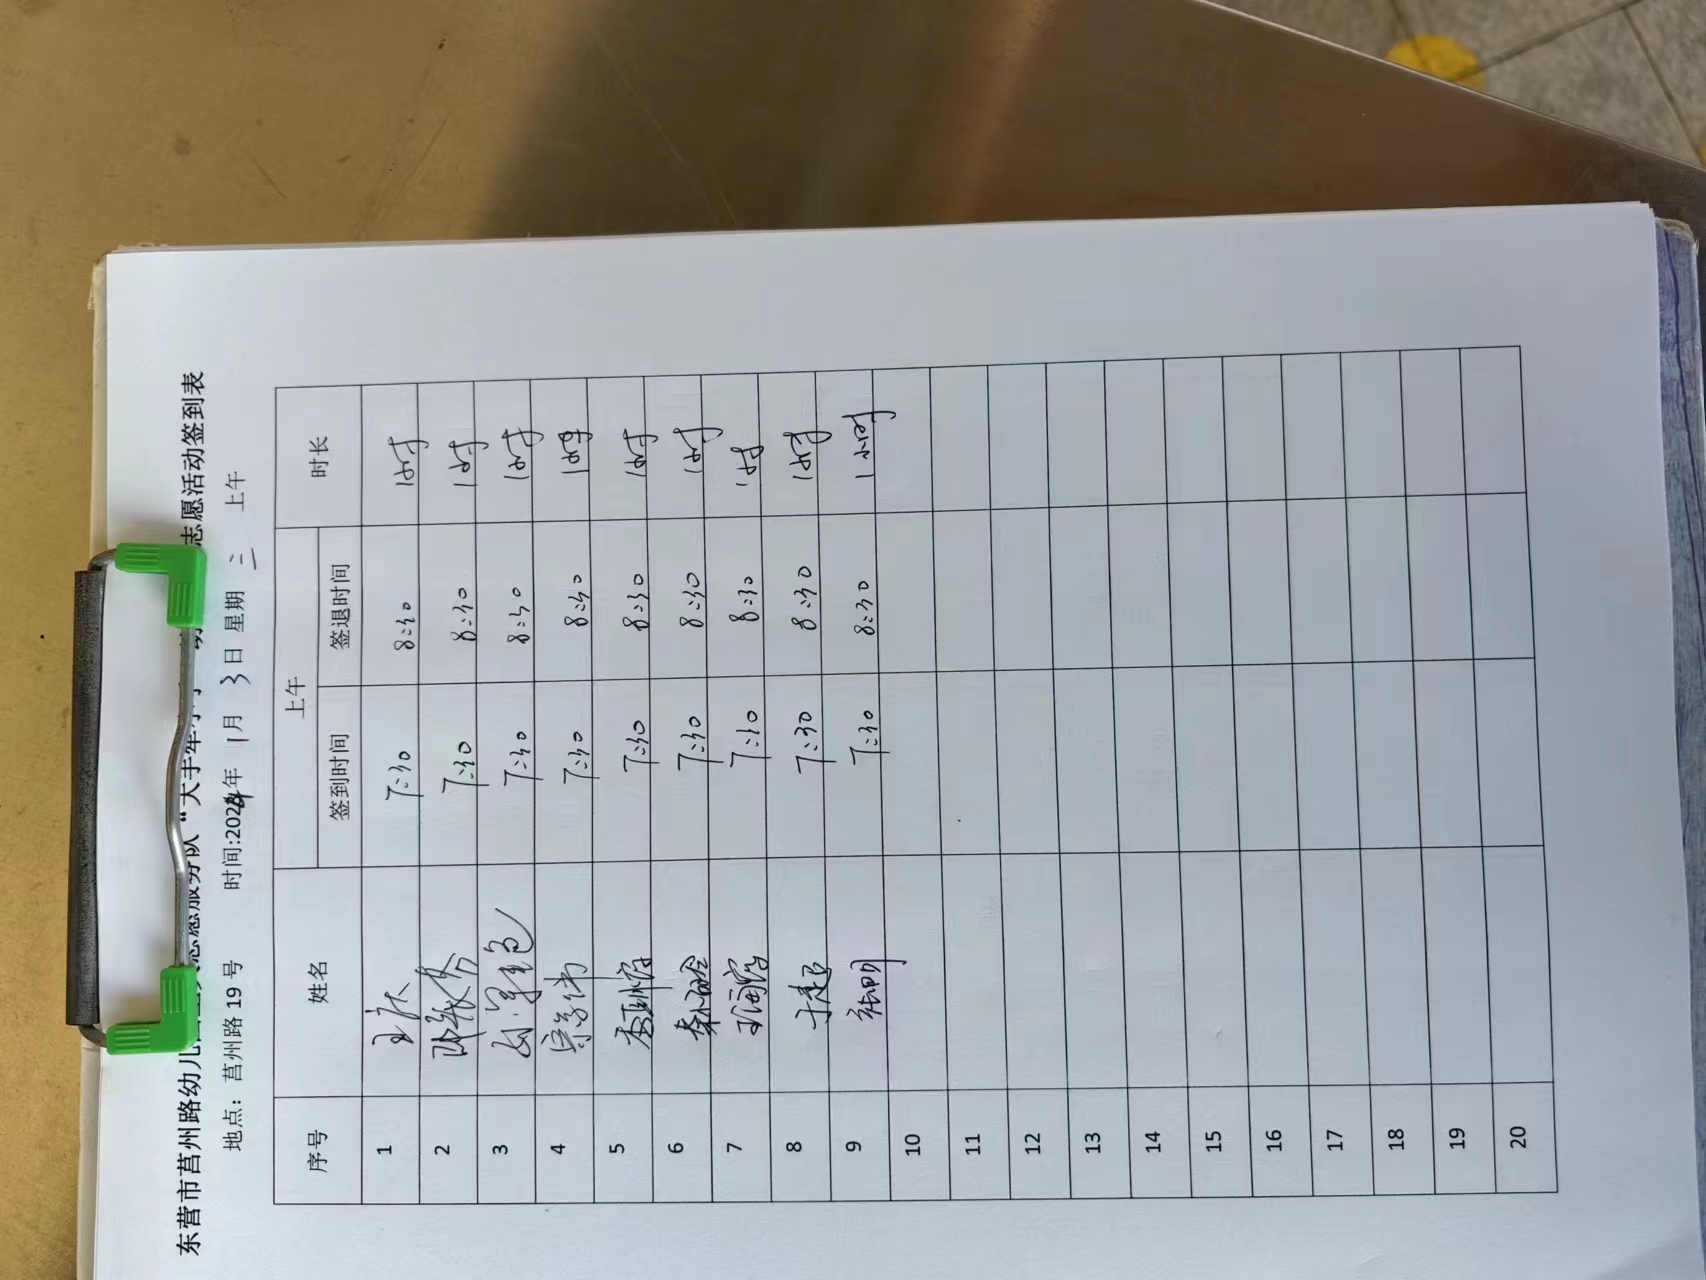 东营市莒州路幼儿园 志愿服务队“大手牵小手 志愿活动签到表
地点：莒州路 19 号 时间:2024年 1月 3日 星期 三 上午
序号 姓名 上午 时长
签到时间 签退时间
1 7:30 8:30 1小时
2 7:30 8:30 1小时
3 7:30 8:30 1小时
4 7:30 8:30 1小时
5 7:30 8:30 1小时
6 7:30 8:30 1小时
7 7:30 8:30 1小时
8 于超 7:30 8:30 1小时
9 7:30 8:30 1小时
10
11
12
13
14
15
16
17
18
19
20